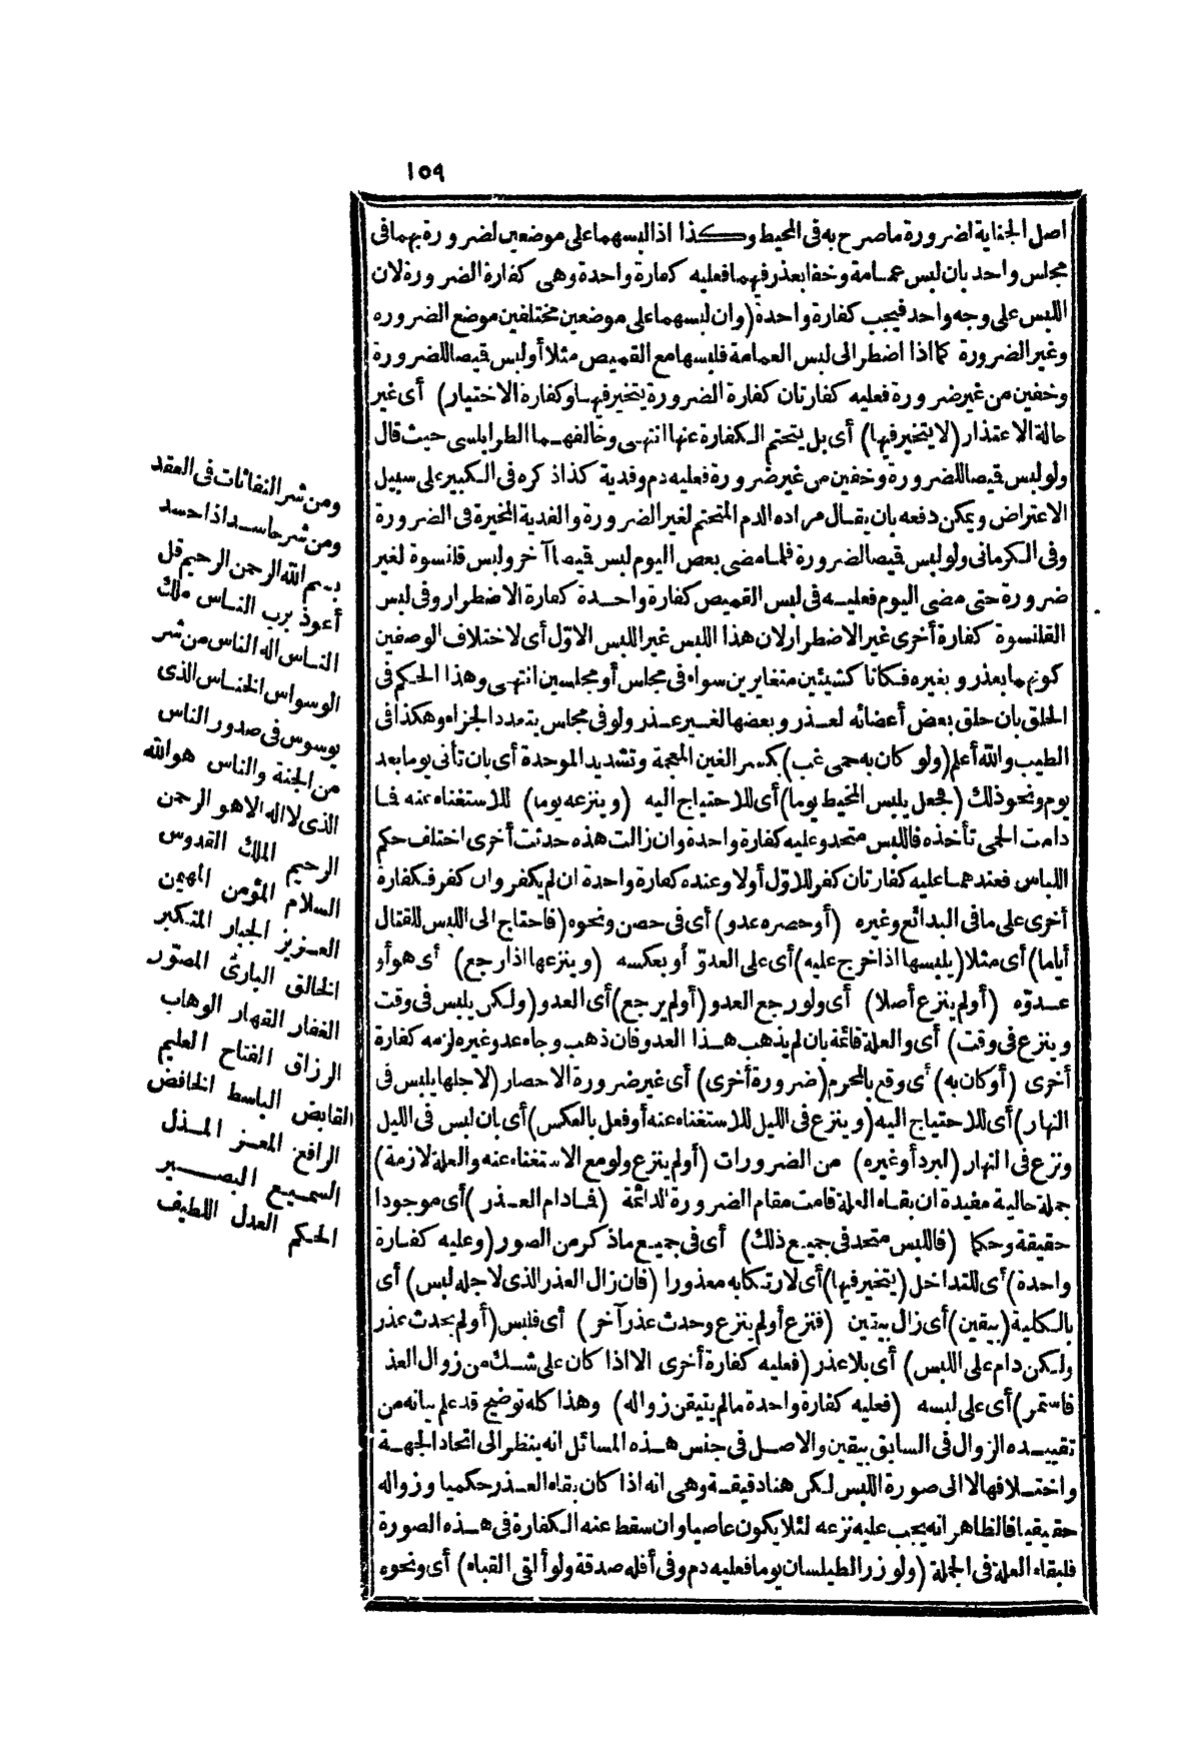 ١٥٩
اصل الجناية لضرورة ما صرح به في المحيط وكذا اذا لبسهما على موضعين لضرورة بهما في
مجلس واحد بان لبس عمامة وخفا بعذر فيهما فعليه كفارة واحدة وهى كفارة الضرورة لان
اللبس على وجه واحد فيجب كفارة واحدة (وان لبسهما على موضعين مختلفين موضع الضروره
وغير الضرورة كما اذا اضطر الى لبس العمامة فلبسها مع القميص مثلا أو لبس قميصا للضرورة
وخفين من غير ضرورة فعليه كفارتان كفارة الضرورة يتخير فيها وكفارة الاختيار) أى غير
حالة الاعتذار (لا يتخير فيها) أى بل يتحتم الكفارة عنها انتهى وخالفهما الطرابلسى حيث قال
ولو لبس قميصا للضرورة وخفين من غير ضرورة فعليه دم وفدية كذا ذكره فى الكبير على سبيل
الاعتراض ويمكن دفعه بان يقال مراده الدم المتحتم لغير الضرورة والفدية المخيرة فى الضرورة
وفى الكرمانى ولو لبس قميصا لضرورة فلما مضى بعض اليوم لبس قميصا آخر ولبس قلنسوة لغير
ضرورة حتى مضى اليوم فعليه فى لبس القميص كفارة واحدة كفارة الاضطرار وفى لبس
القلنسوة كفارة أخرى غير الاضطرار لان هذا اللبس غير اللبس الاوّل أى لاختلاف الوصفين
كونهما بعذر وبغيره فكانا كشيئين متغايرين سواء فى مجلس أو مجلسين انتهى وهذا الحكم فى
الحلق بان حلق بعض أعضائه لعذر وبعضها لغير عذر ولو فى مجلس يتعدد الجزاء وهكذا فى
الطيب والله أعلم (ولو كان به حمى غب) بكسر الغين المعجمة وتشديد الموحدة أى بان تأتى يوما بعد
يوم ونحو ذلك (فجعل يلبس المخيط يوما) أى للاحتياج اليه (وينزعه يوما) للاستغناء عنه فما
دامت الحمى تأخذه فاللبس متحد وعليه كفارة واحدة وان زالت هذه حدثت أخرى اختلف حكم
اللباس فعندهما عليه كفارتان كفر للاوّل أولا وعنده كفارة واحدة ان لم يكفر وان كفر فكفارة
أخرى على ما فى البدائع وغيره (أو حصره عدو) أى فى حصن ونحوه (فاحتاج الى اللبس للقتال
أياما) أى مثلا (يلبسها اذا خرج عليه) أى على العدوّ أو بعكسه (وينزعها اذا رجع) أى هو أو
عدوّه (أو لم ينزع أصلا) أى ولو رجع العدو (أو لم يرجع) أى العدو (ولكن يلبس فى وقت
وينزع فى وقت) أى والعلة قائمة بان لم يذهب هذا العدو فان ذهب وجاء عدو غيره لزمه كفارة
أخرى (أو كان به) أى وقع بالمحرم (ضرورة أخرى) أى غير ضرورة الاحصار (لاجلها يلبس فى
النهار) أى للاحتياج اليه (وينزع فى الليل للاستغناء عنه أو فعل بالعكس) أى بان لبس فى الليل
ونزع فى النهار (لبرد أو غيره) من الضرورات (أو لم ينزع ولو مع الاستغناء عنه والعلة لازمة)
جملة حالية مفيدة ان بقاء العلة قامت مقام الضرورة الدائمة (فما دام العذر) أى موجودا
حقيقة وحكما (فاللبس متحد فى جميع ذلك) أى فى جميع ما ذكر من الصور (وعليه كفارة
واحدة) أى للتداخل (يتخير فيها) أى لارتكابه معذورا (فان زال العذر الذى لاجله لبس) أى
بالكلية (بيقين) أى زال بيقين (فنزع أو لم ينزع وحدث عذر آخر) أى فلبس (أو لم يحدث عذر
ولكن دام على اللبس) أى بلا عذر (فعليه كفارة أخرى الا اذا كان على شك من زوال العذ
فاستمر) أى على لبسه (فعليه كفارة واحدة ما لم يتيقن زواله) وهذا كله توضيح قد علم بيانه من
تقييده الزوال فى السابق بيقين والاصل فى جنس هذه المسائل انه ينظر الى اتحاد الجهة
واختلافها لا الى صورة اللبس لكن هنا دقيقة وهى انه اذا كان بقاء العذر حكميا وزواله
حقيقيا فالظاهر انه يجب عليه نزعه لئلا يكون عاصيا وان سقط عنه الكفارة فى هذه الصورة
فلبقاء العلة فى الجملة (ولو زر الطيلسان يوما فعليه دم وفى أقله صدقة ولو ألقى القباء) أى ونحوه
ومن شر النفاثات فى العقد
ومن شر حاسد اذا حسد
بسم الله الرحمن الرحيم قل
أعوذ برب الناس ملك
الناس اله الناس من شر
الوسواس الخناس الذى
يوسوس فى صدور الناس
من الجنة والناس هو الله
الذى لا اله الا هو الرحمن
الرحيم الملك القدوس
السلام المؤمن المهيمن
العزيز الجبار المتكبر
الخالق البارئ المصوّر
الغفار القهار الوهاب
الرزاق الفتاح العليم
القابض الباسط الخافض
الرافع المعز المذل
السميع البصير
الحكم العدل اللطيف